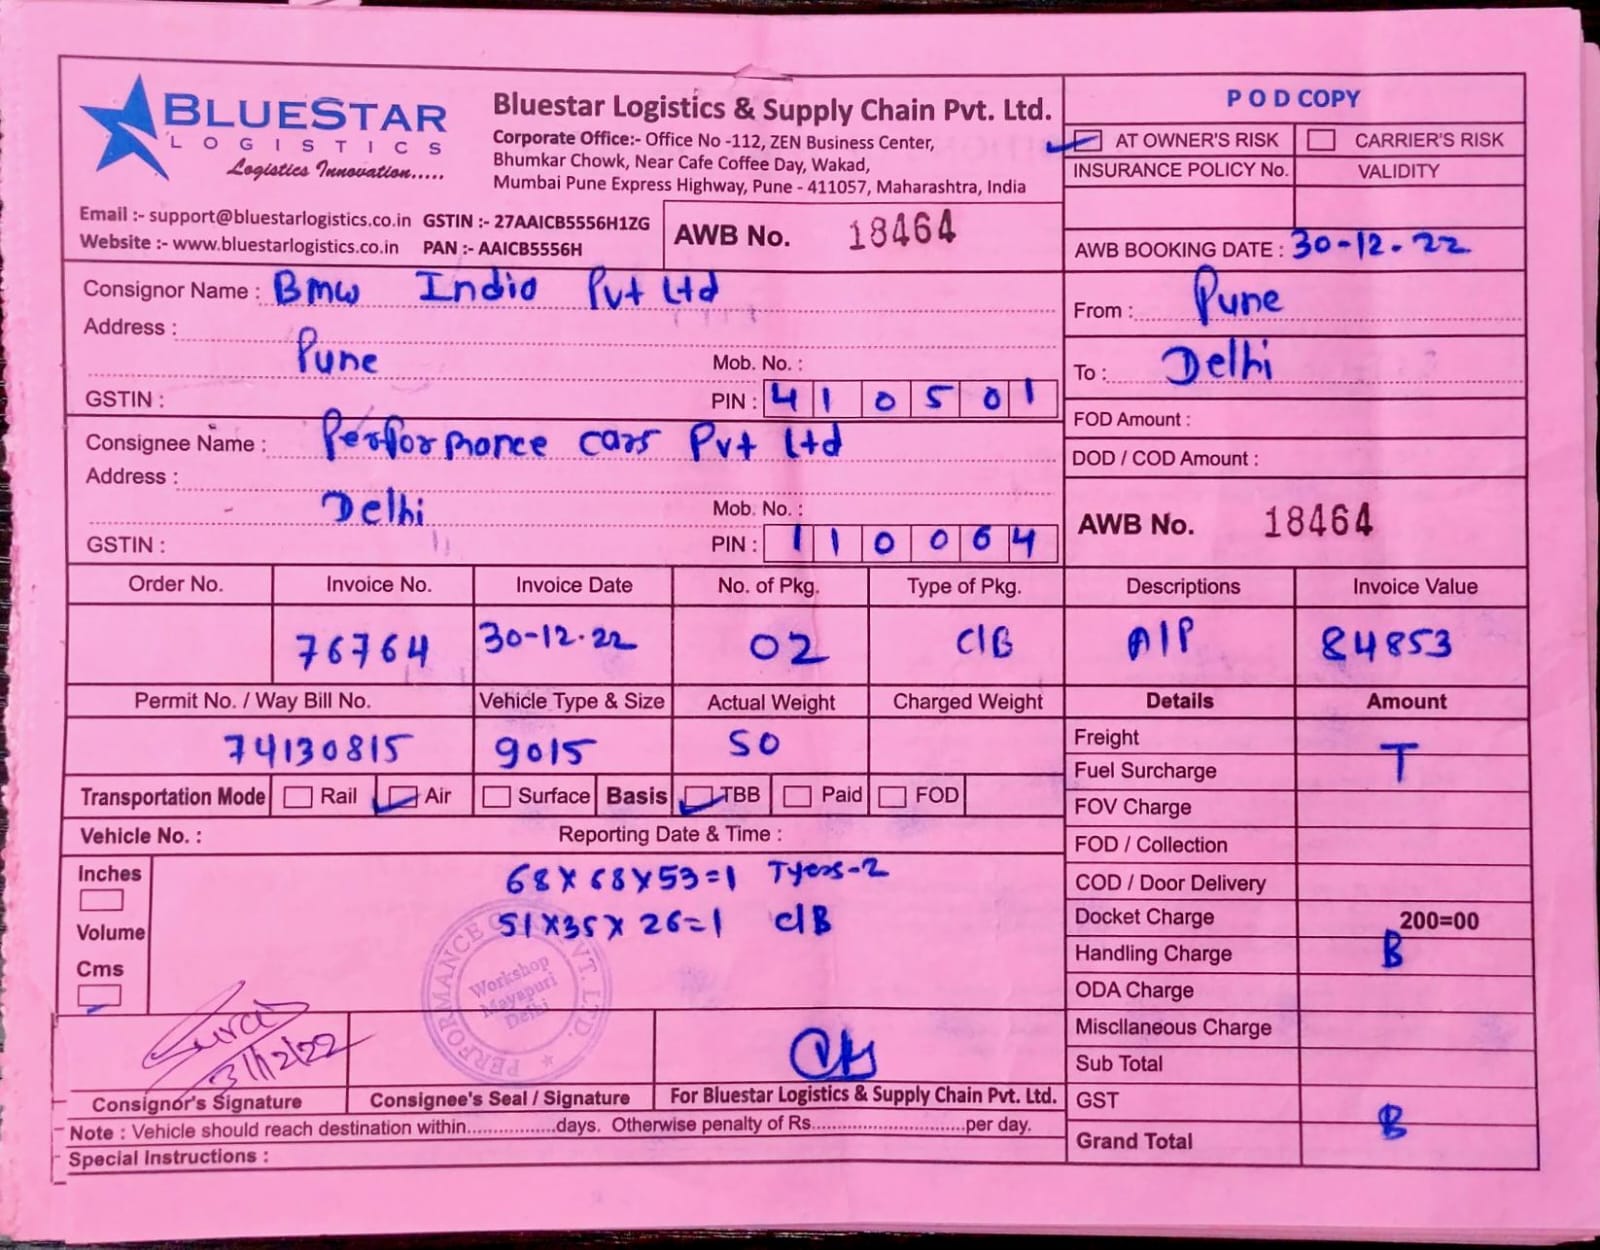 BLUESTAR
LOGISTICS
Logistics Innovation.....
Bluestar Logistics & Supply Chain Pvt. Ltd.
Corporate Office:- Office No -112, ZEN Business Center,
Bhumkar Chowk, Near Cafe Coffee Day, Wakad,
Mumbai Pune Express Highway, Pune - 411057, Maharashtra, India
Email :- support@bluestarlogistics.co.in GSTIN :- 27AAICB5556H1ZG
Website :- www.bluestarlogistics.co.in PAN :- AAICB5556H
AWB No. 18464
P O D COPY
AT OWNER'S RISK CARRIER'S RISK
INSURANCE POLICY No. VALIDITY
AWB BOOKING DATE : 30-12-22
Consignor Name : Bmw India Pvt Ltd
Address :
Pune Mob. No. :
GSTIN : PIN : 410501
From : Pune
To : Delhi
FOD Amount :
DOD / COD Amount :
Consignee Name : Performance cars Pvt Ltd
Address :
Delhi Mob. No. :
GSTIN : PIN : 110064
AWB No. 18464
Order No. Invoice No. Invoice Date No. of Pkg. Type of Pkg. Descriptions Invoice Value
76764 30-12-22 02 C/B A/P 84853
Permit No. / Way Bill No. Vehicle Type & Size Actual Weight Charged Weight Details Amount
74130815 9015 50
Freight
T
Fuel Surcharge
Transportation Mode Rail Air Surface Basis TBB Paid FOD
FOV Charge
Vehicle No. : Reporting Date & Time :
FOD / Collection
COD / Door Delivery
Docket Charge 200=00
Handling Charge B
ODA Charge
Miscllaneous Charge
Sub Total
GST
B
Grand Total
Inches
Volume
Cms
68 X 68 X 53=1 Tyers-2
51 X 35 X 26=1 C/B
PERFORMANCE CARS PVT. LTD.
Workshop
Mayapuri
Delhi
Suraj
31/12/22
Consignor's Signature Consignee's Seal / Signature For Bluestar Logistics & Supply Chain Pvt. Ltd.
Note : Vehicle should reach destination within................days. Otherwise penalty of Rs............................per day.
Special Instructions :